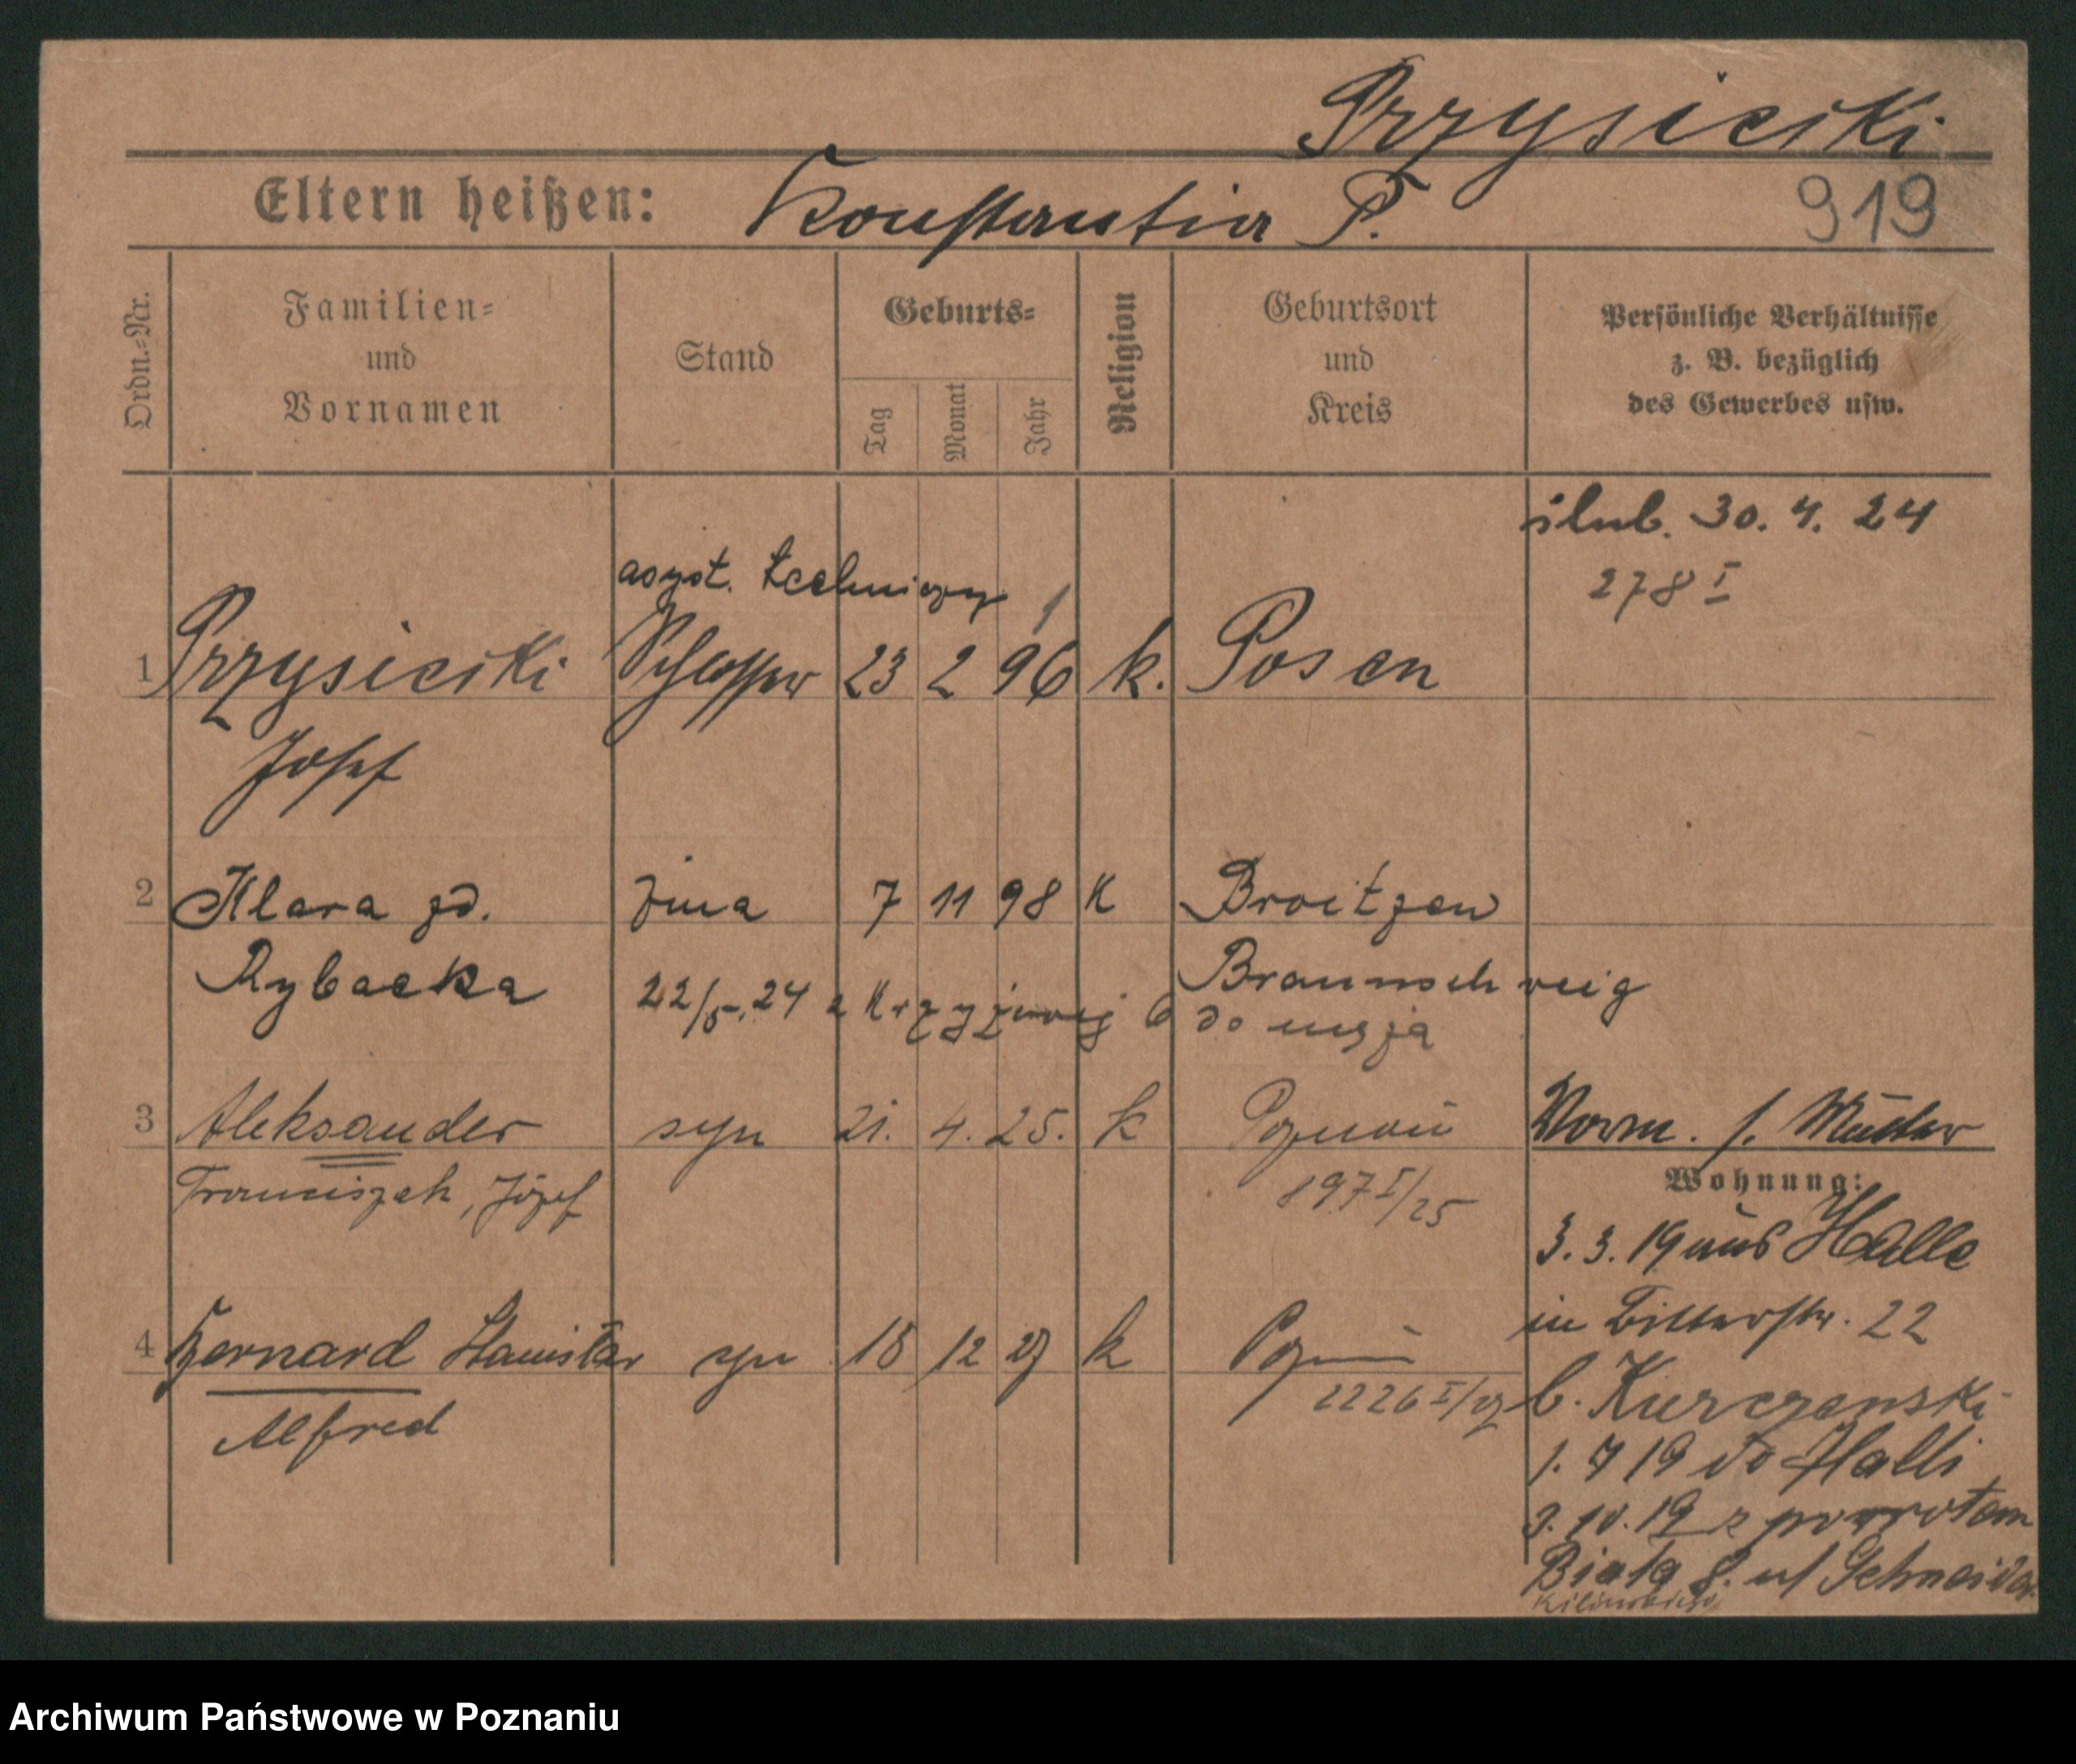 Przysiecki
Eltern heißen: Konstantia P. 919
Ordn.-Nr.
Familien-
und
Vornamen
Stand
Geburts-
Tag
Monat
Jahr
Religion
Geburtsort
und
Kreis
Persönliche Verhältnisse
z. B. bezüglich
des Gewerbes usw.
ślub. 30. 4. 24
278 I
asyst. techniczny
1 Przysiecki Schlosser 23 2 96 k. Posen
Josef
2 Klara zd. żona 7 11 98 K Broitzen
Rybacka
Braunschweig
22/5.24 z Krzyżowej 6 do męża
3 Aleksander syn 21. 4. 25. k Poznań
Franciszek, Józef
897 I/25
Vorm. s. Mutter
Wohnung:
3. 3. 19 aus Halle
in Bitterstr. 22
4 Bernard Stanisław syn 18 12 27 k Pozn
Alfred
2226 I/27
b. Kurczewski
1. 7 19 do Halli
9. 10. 19 z powrotem
Biała 8. u/ Schneider
Kilińskiego